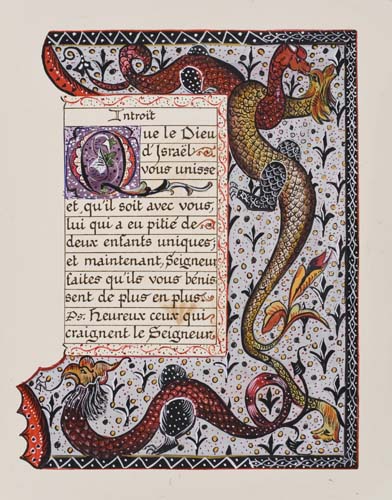 Introit
Que le Dieu
d'Israël
vous unisse
et, qu'il soit avec vous,
lui qui a eu pitié de
deux enfants uniques;
et maintenant, Seigneur
faites qu'ils vous bénis
sent de plus en plus.
Ps: heureux ceux qui
craignent le Seigneur.